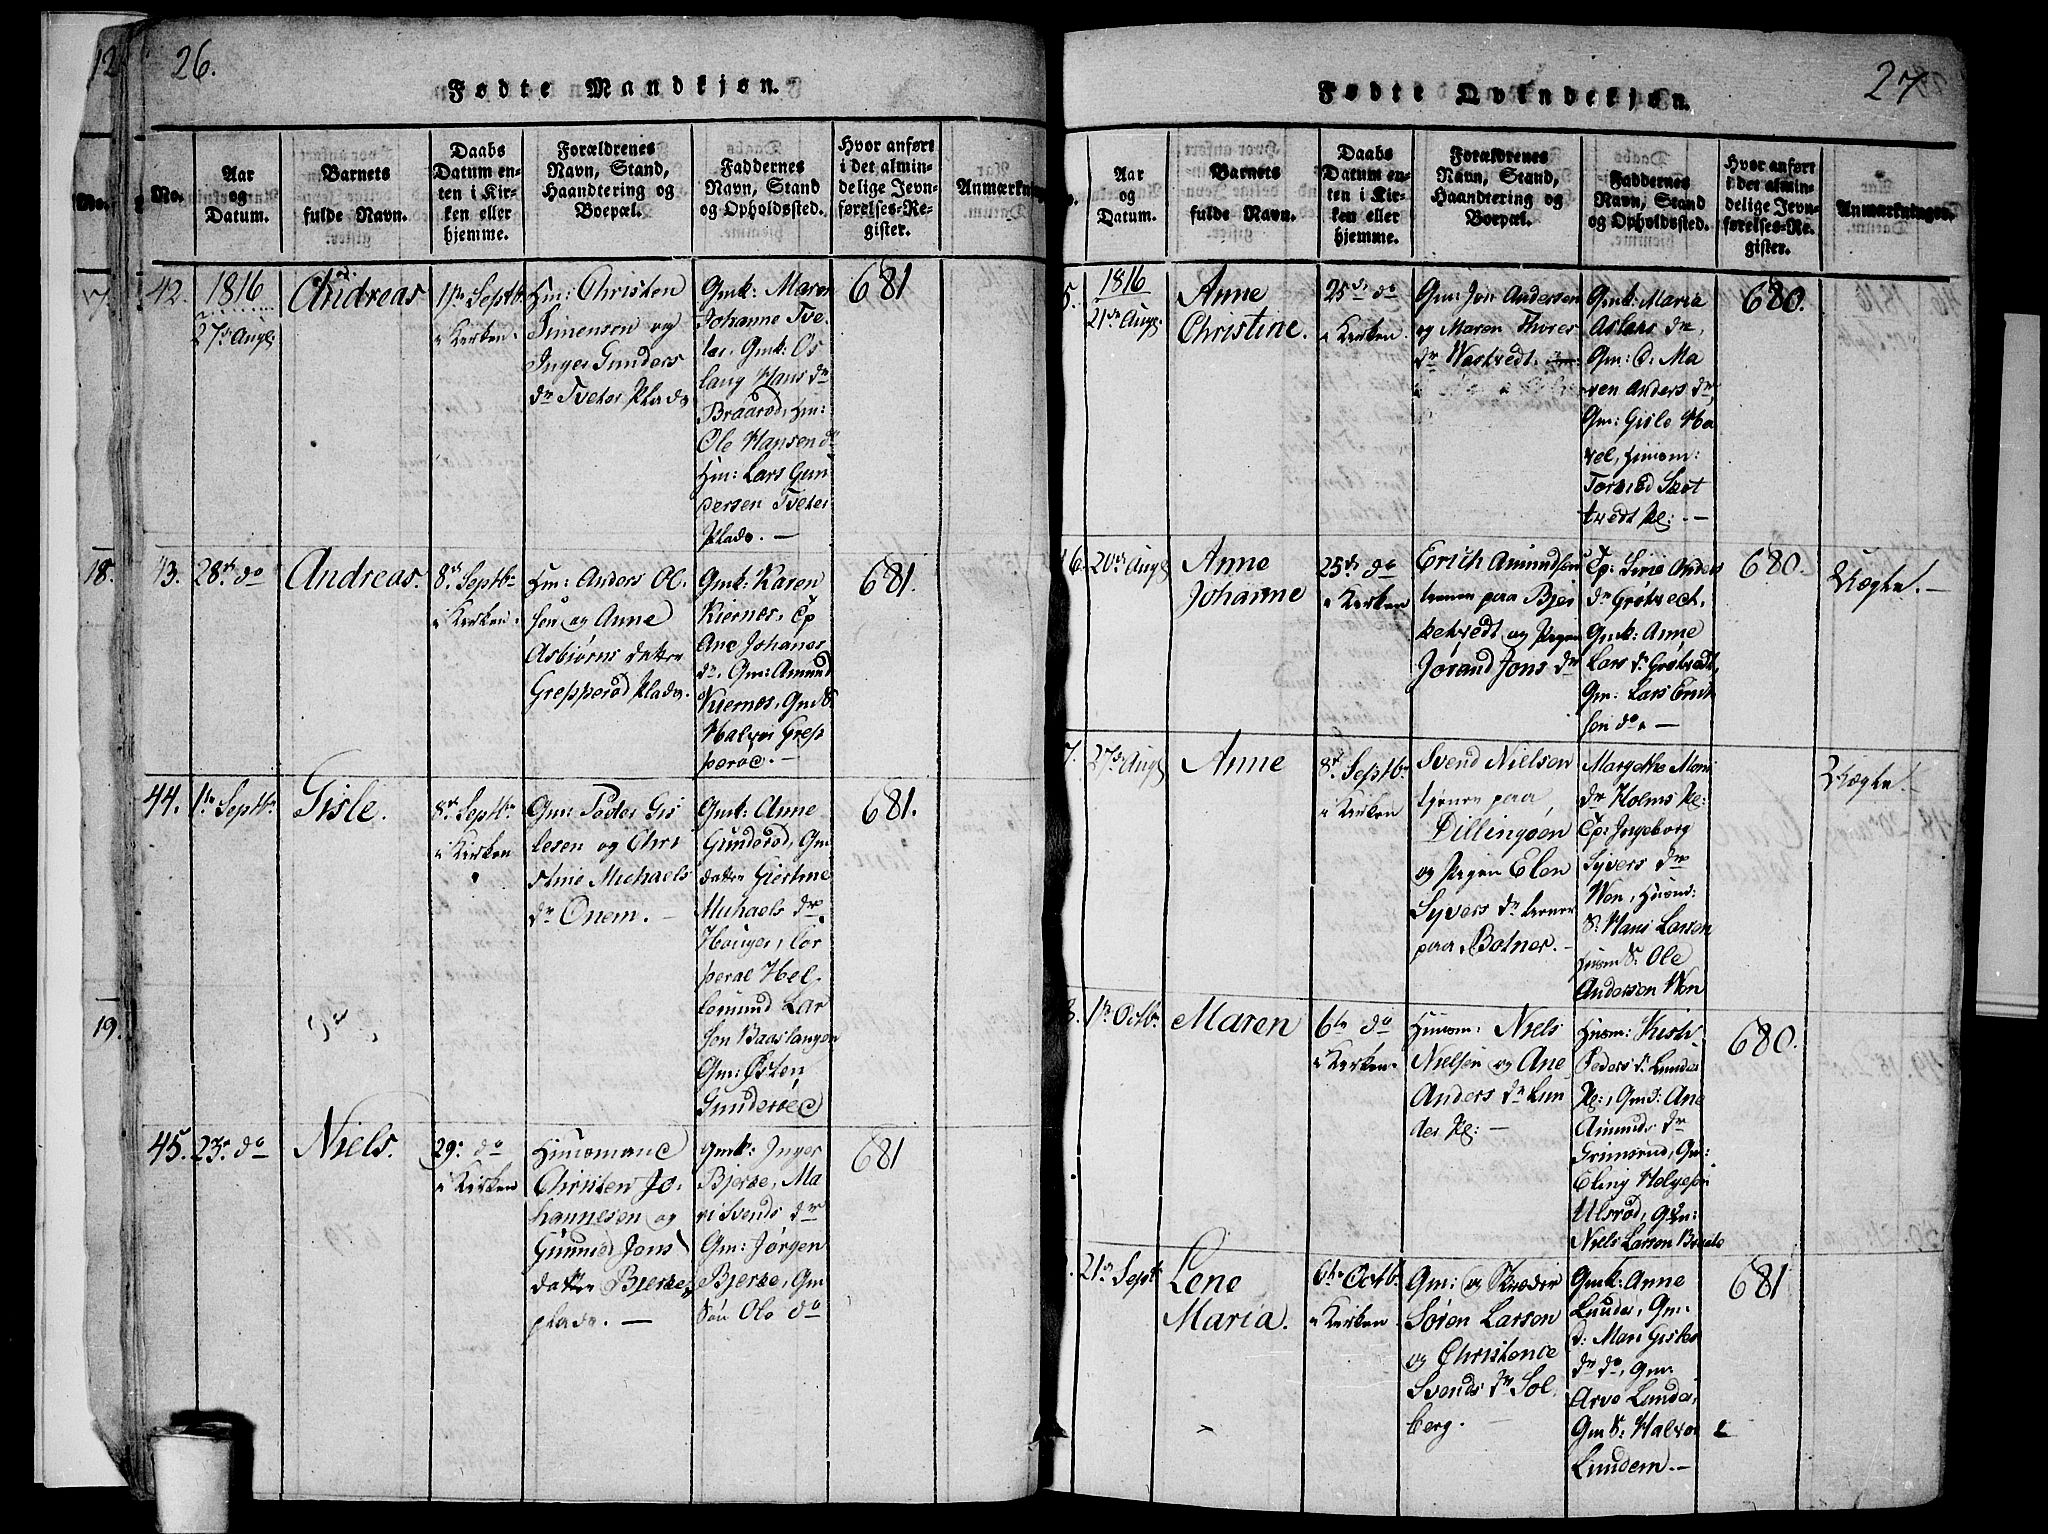 26.
Fødte Mandkjøn.
No.
Aar
og
Datum.
Barnets
fulde Navn.
Daabs
Datum en-
ten i Kir-
ken eller
hjemme.
Forældrenes
Navn, Stand,
Haandtering og
Boepæl.
Faddernes
Navn, Stand
og Opholdssted.
Hvor anført
i det almin-
delige Jevn-
førelses-Re-
gister.
Anmærkning
42.
1816
27de Aug.
Andreas
1ste Septbr.
i Kirken.
Hm: Christen
Simensen og
Inger Gunders
dr Tveter Plads
Gmk: Maren
Johanne Tve-
ter. Gmk: Os
laug Hans dr
Braarød, Hm:
Ole Hansen do
Hm: Lars Gun
dersen Tveter
Plads. —
681
43.
28de do
Andreas.
8de Septbr
i Kirken.
Hm: Anders Ol
sen og Anne
Asbjørns datter
Grepperød Plads.
Gmk: Karen
Kiernes, Tp
Ane Johanes
dr, Gm: Amund
Kiernes, Gm S.
Halvor Grep
perød. —
681.
44.
1ste Septbr.
Gisle.
8de Septbr
i Kirken
Gm: Peder Gis
lesen og Chri
stine Michaels
dr Onem. —
Gmk: Anne
Gunderød, Gm
datter Giertine
Michaels dr
Houger, Cor
peral Hel
lemund Lar
sen Baaslangen
Gm: Østen
Gunderød
681.
45.
23. do
Niels.
29. do
i Kirken
Huusmand
Christen Jo-
hannesen og
Gunnild Jons
datter Bjerke
plads. —
Gmk: Inger
Bjerke, Ma
ri Svends dr
Gm: Jørgen
Bjerke, Gm
Søn Ole do
681
27
Fødte Qvindekjøn.
Aar
og
Datum.
Barnets
fulde Navn.
Daabs
Datum en-
ten i Kir-
ken eller
hjemme.
Forældrenes
Navn, Stand,
Haandtering og
Boepæl.
Faddernes
Navn, Stand
og Opholdssted.
Hvor anført
i det almin-
delige Jevn-
førelses-Re-
gister.
Anmærkninger.
5.
1816
21de Aug.
Anne
Christine.
25de do
i Kirken.
Gm: Jon Andersen
og Maren Thores
dr Westvedt.
Gmk: Maria
Aslaks dr,
Gm: d: Ma
ren Anders dr,
Gm: Gisle Ha
vel, Huusm:
Toræld
tvedt Pl: —
680.
6.
20de Aug
Anne
Johanne
25de do
i Kirken
Erich Amundsen
tiener paa Bjer
ketvedt og Pigen
Jørand Jons dr
Tp: Siri Anders
dr Grøtvedt,
Gmk: Anne
Lars dr Grøtvedt,
Gm: Lars Erich
sen do. —
680.
Uægte! —
7.
27de Aug
Anne
8de Septbr
i Kirken
Svend Nielsen
tjener paa
Dillingøen
og Pigen Elen
Syvers dr tiener
paa Botner. —
Margethe Mons
dr Holms Pl:
Tp: Ingeborg
Syvers dr
Won, Huusm:
S: Hans Larsen
Huusm S: Ole
Andersen Won
Uægte!
8.
1ste Octbr.
Maren
6te do
i Kirken
Huusm: Niels
Nielsen og Ane
Anders dr Lun
der Pl: —
Huusm: Kisti
Peders dr Lunder
Pl:, Gmd: Ane
Amunds dr
Grimsrud, Gm:
Eling Helgesen
Ulsrød, Gm:
Niels Larsen
680.
21de Septbr
Lene
Maria.
6te Octbr
i Kirken
Gm: og Skreder
Søren Larsen
og Christence
Svends dr Sol
berg. —
Gmk: Anne
Lunder, Gm-
d: Mari Gisles
dr do, Gm:
Arve Lunder,
Gm S: Halvor
Lundem. —
681
No.
18.
19.